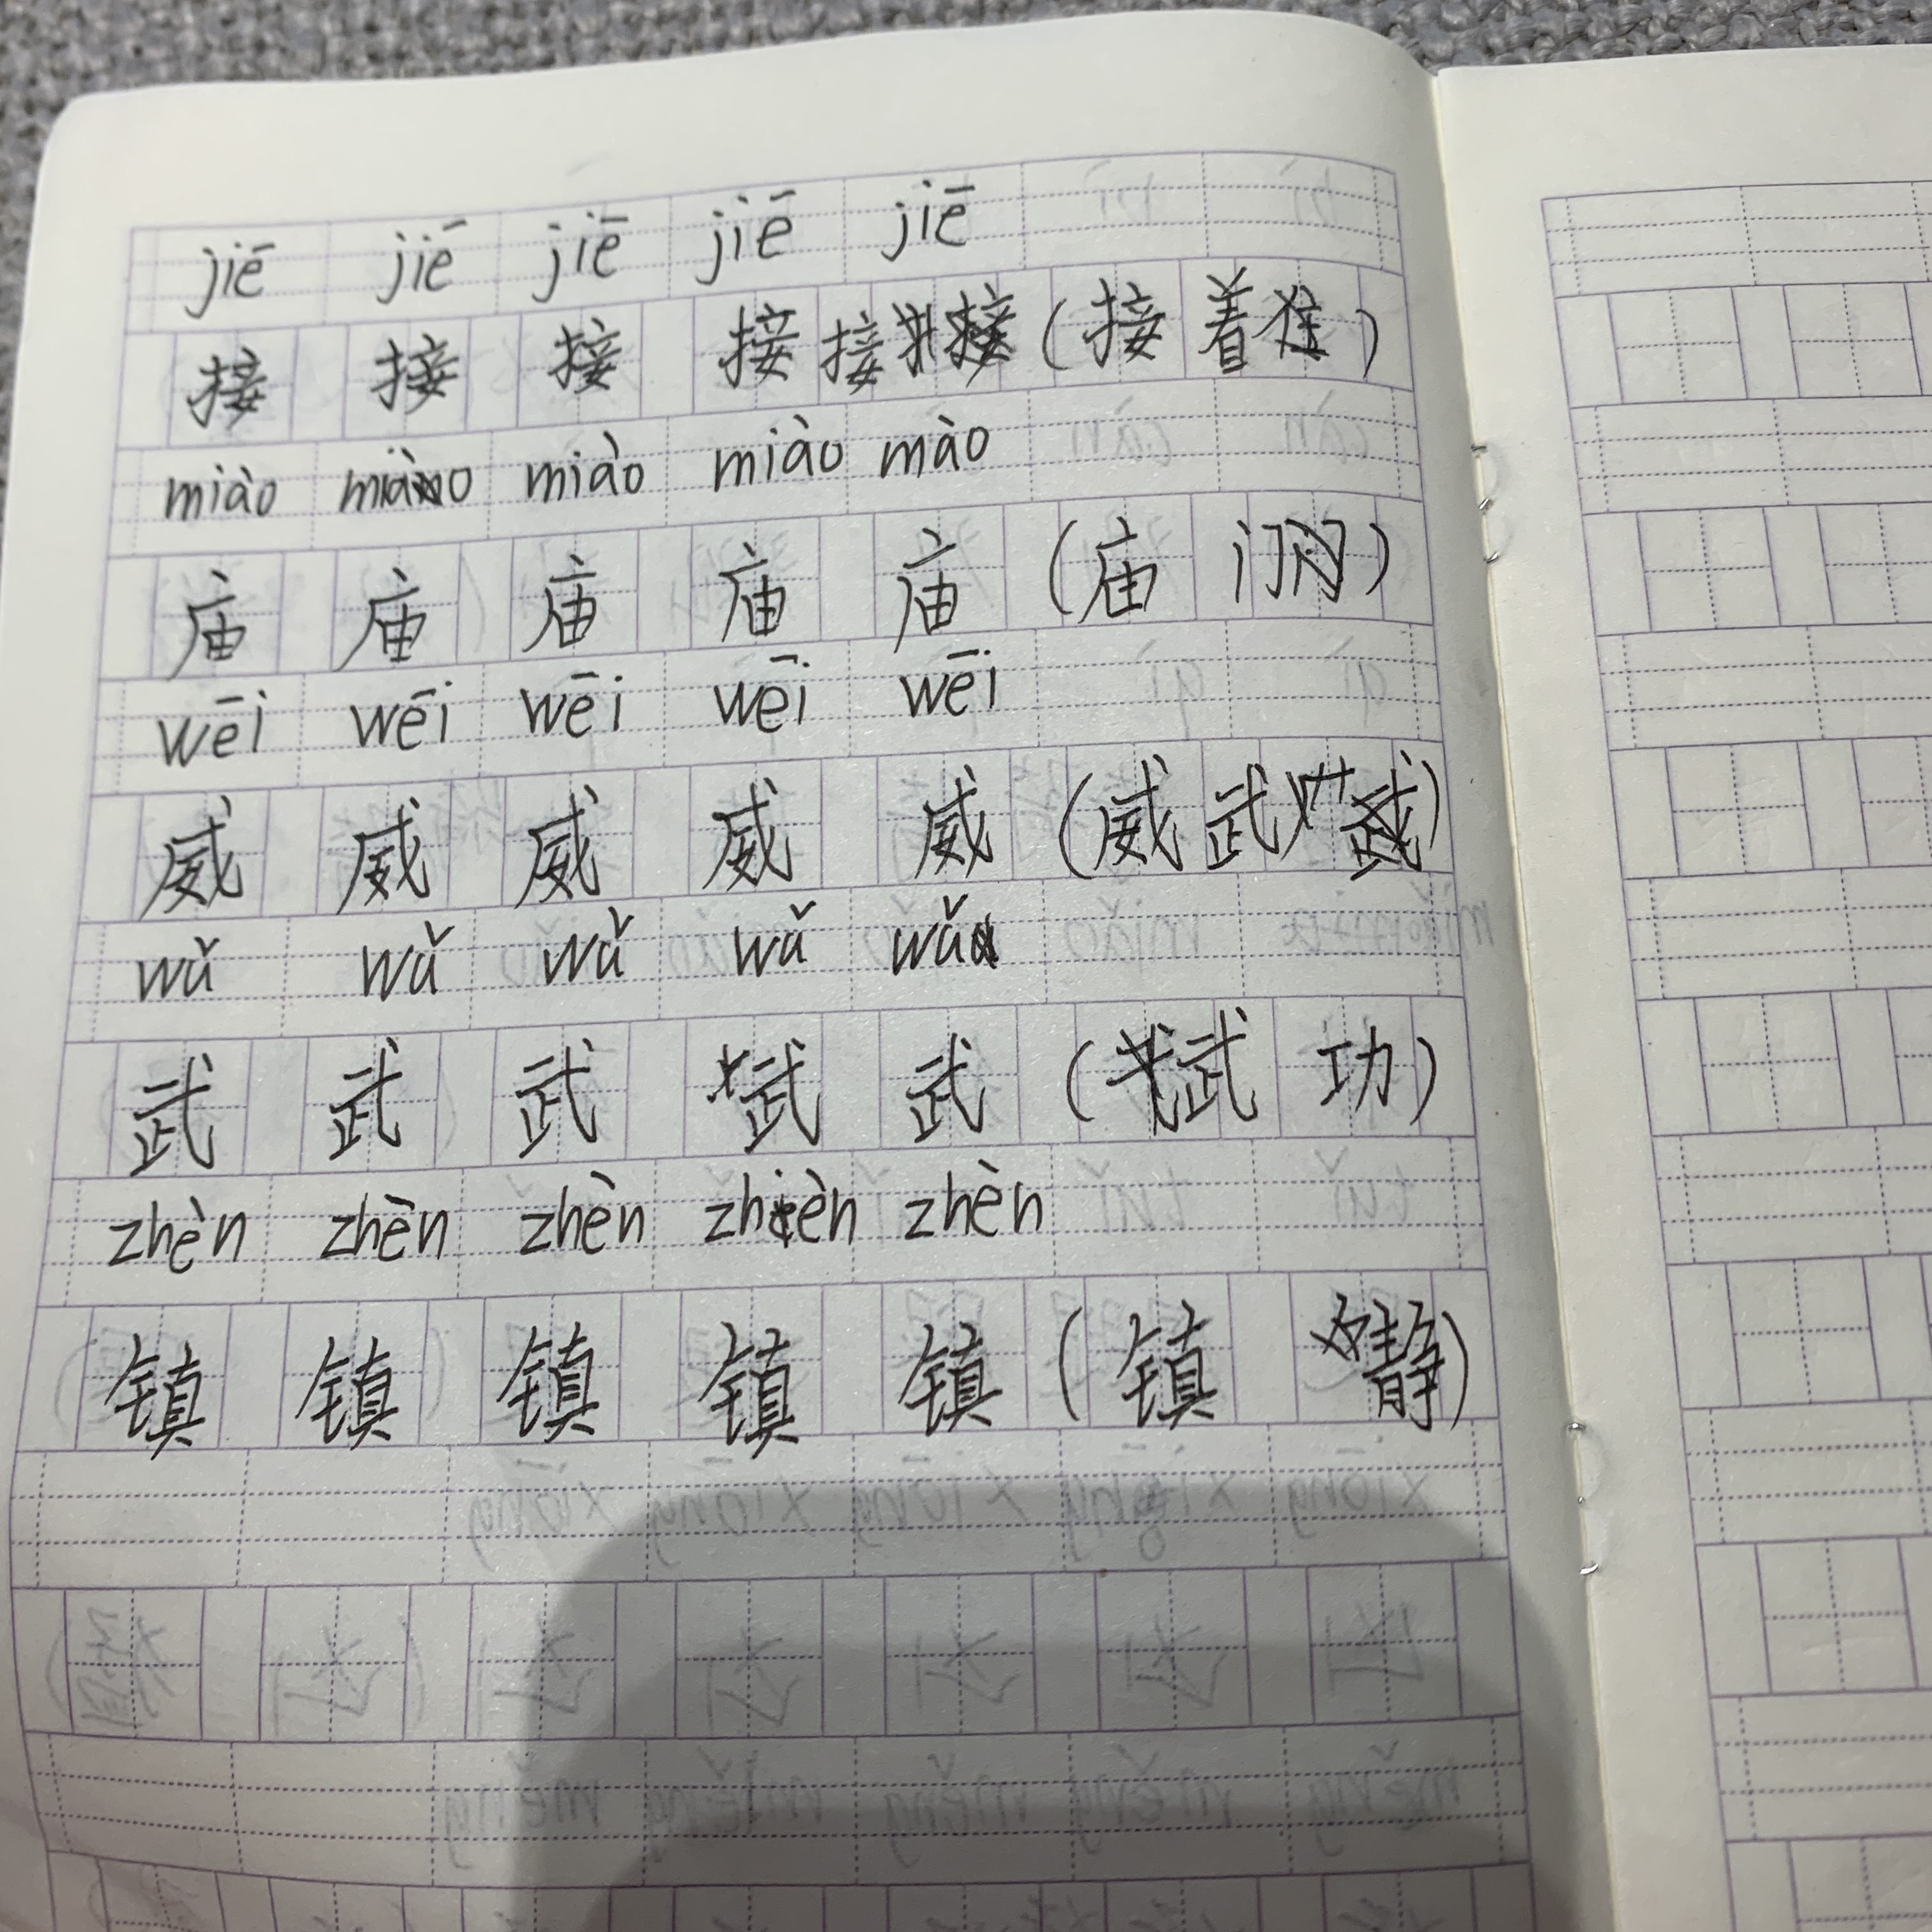 jiē jiē jiē jiē jiē
接 接 接 接 接 (接 着)
miào miào miào miào mào
庙 庙 庙 庙 庙 (庙 门)
wēi wēi wēi wēi wēi
威 威 威 威 威 (威 武)
wǔ wǔ wǔ wǔ wǔ
武 武 武 武 武 (武 功)
zhèn zhèn zhèn zhèn zhèn
镇 镇 镇 镇 镇 (镇 静)